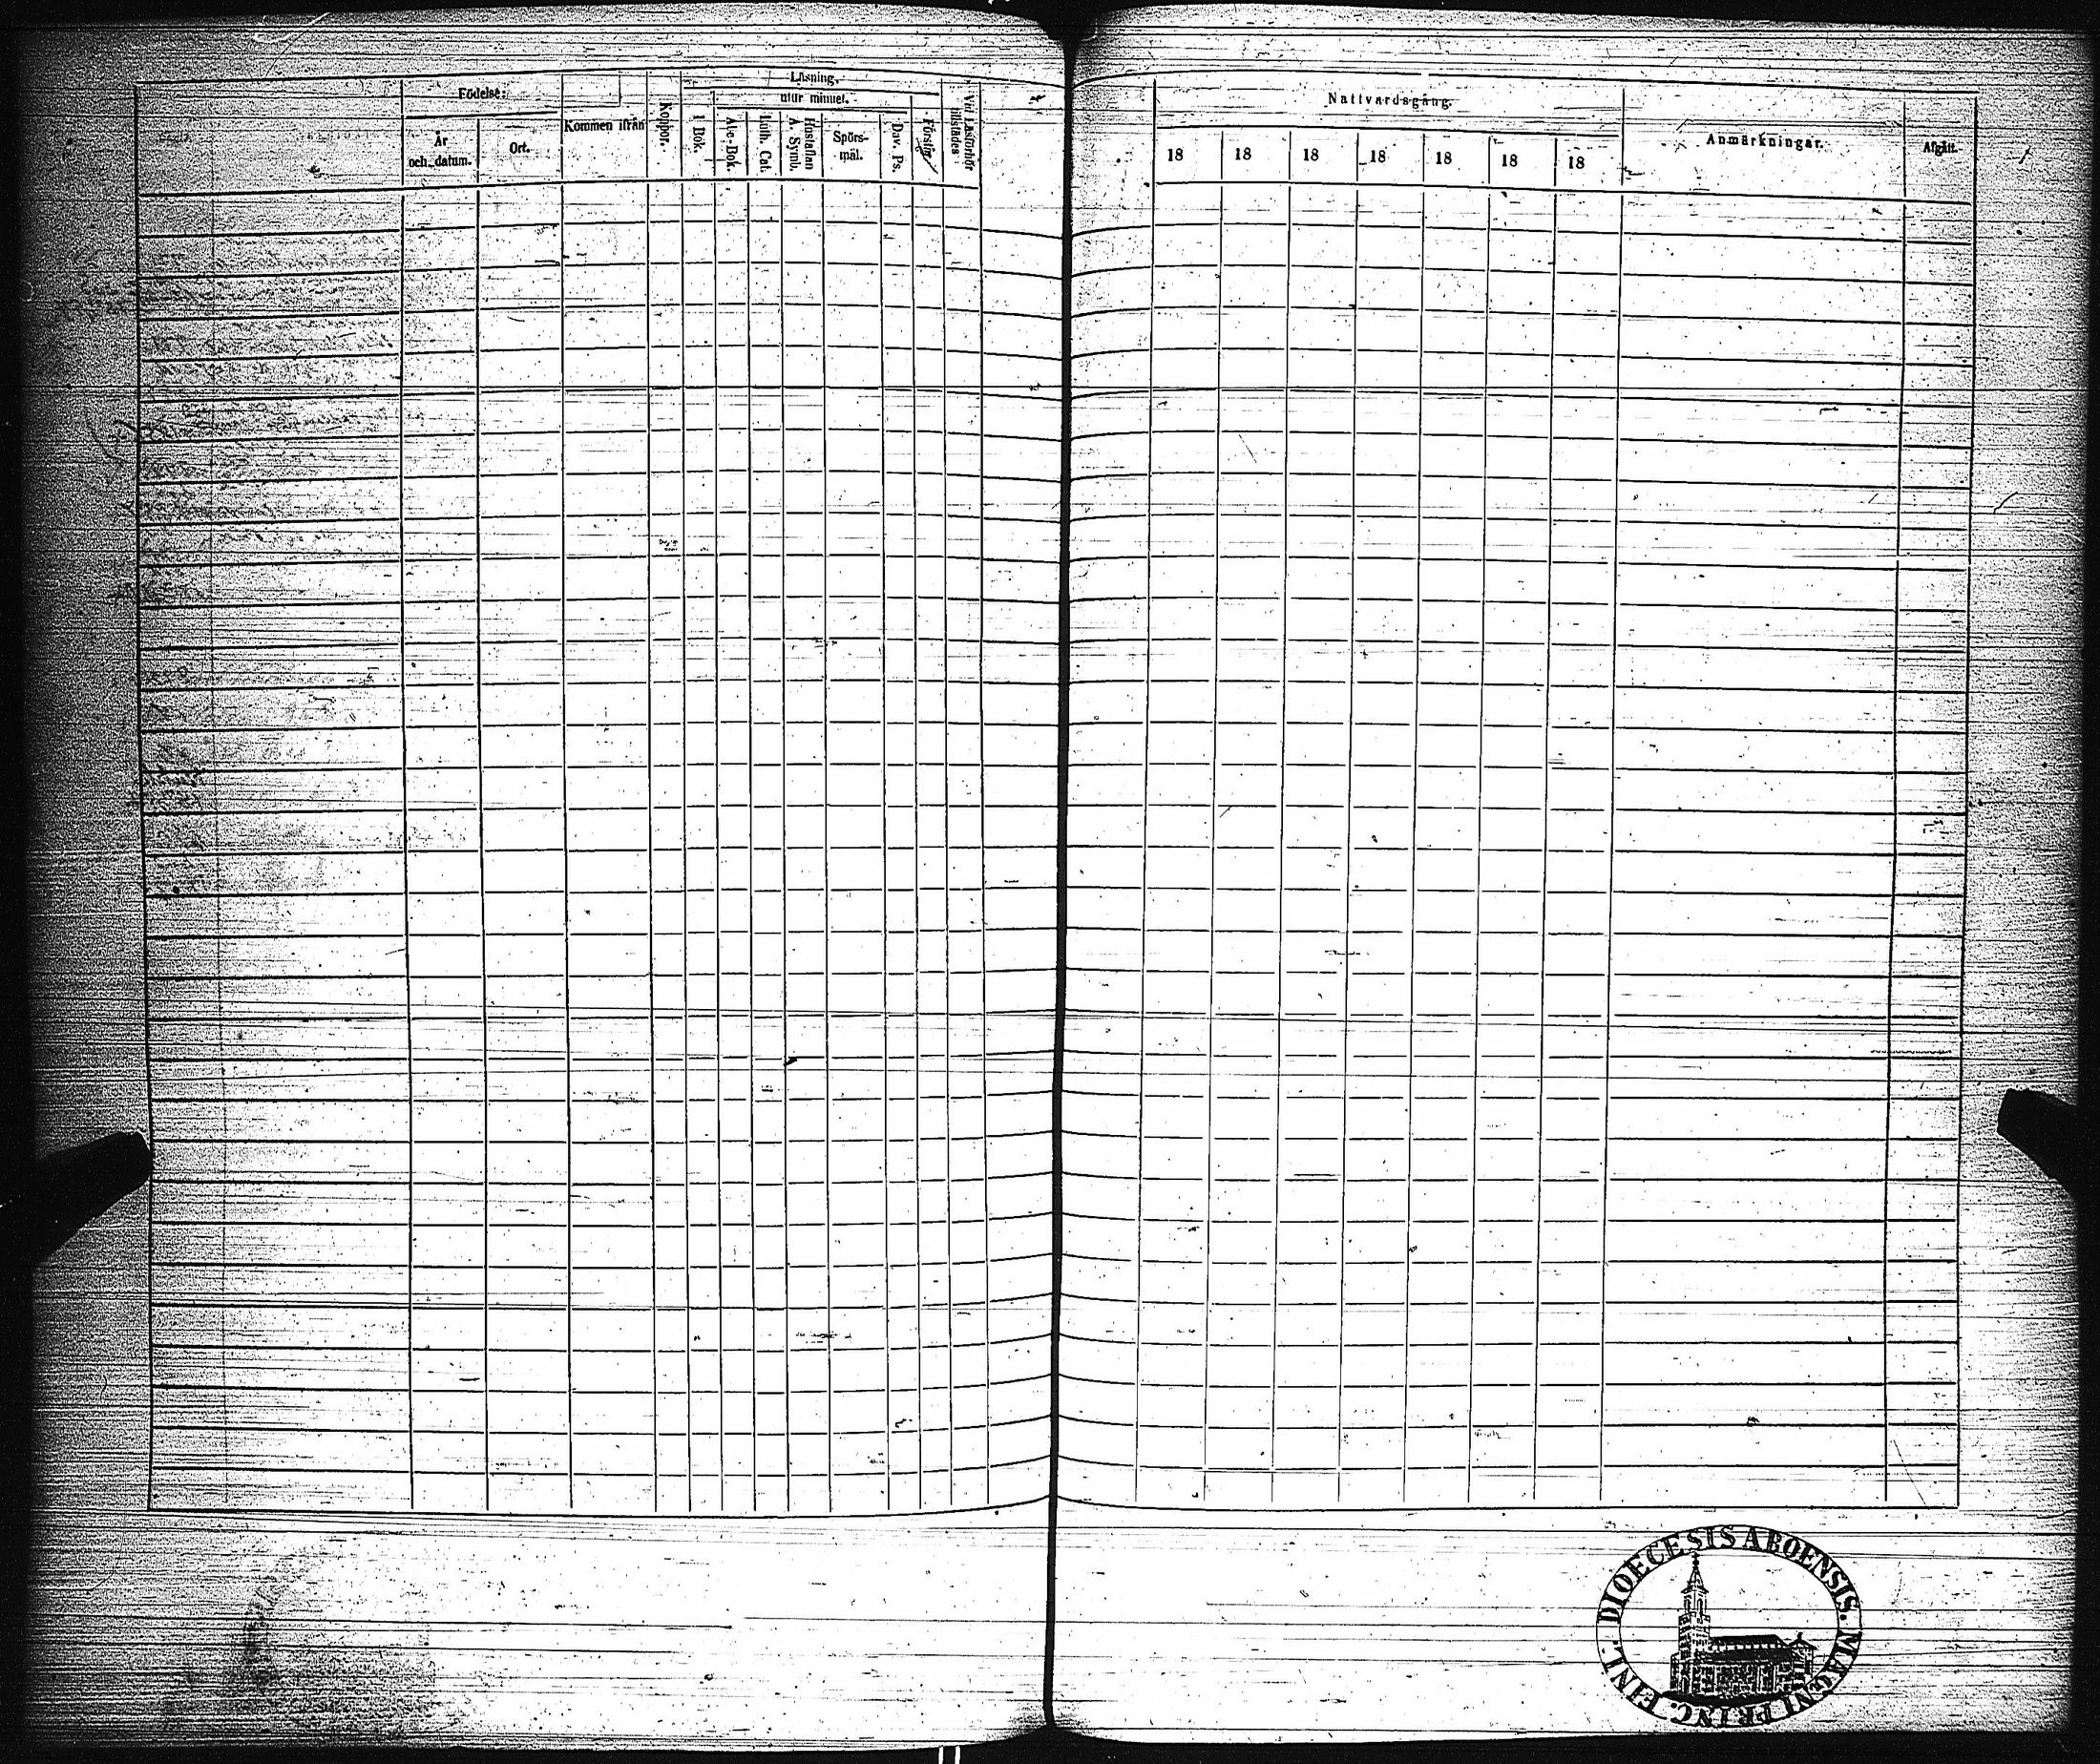 Födelse:
År och datum.
Ort.
Kommen ifrån
Koppor.
Läsning.
utur minnet.
I Bok.
Abc-Bok.
Luth. Cat.
Hustaflan
A. Symb.
Spörs-
mål.
Dav. Ps.
Förstår
Vid Läsförhör
tillstädes
Nattvardsgång.
18 18 18 18 18 18 18
Anmärkningar.
Afgått.
DIOECESIS ABOENSIS. MAGNI PRINC. FINL.